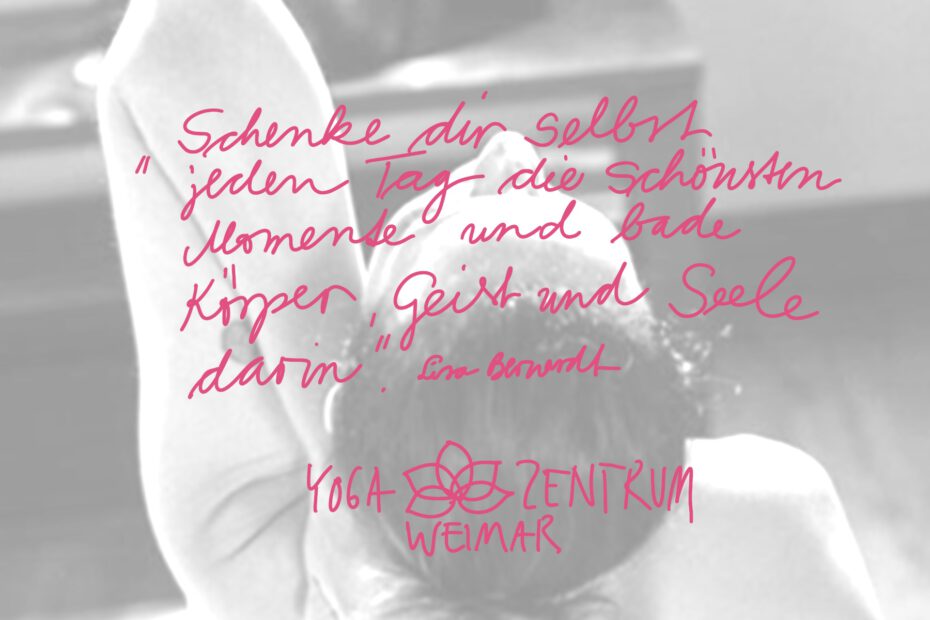 Schenke dir selbst
"jeden Tag die schönsten
Momente und bade
Körper, Geist und Seele
darin". Lisa Bernardt
YOGA ZENTRUM
WEIMAR